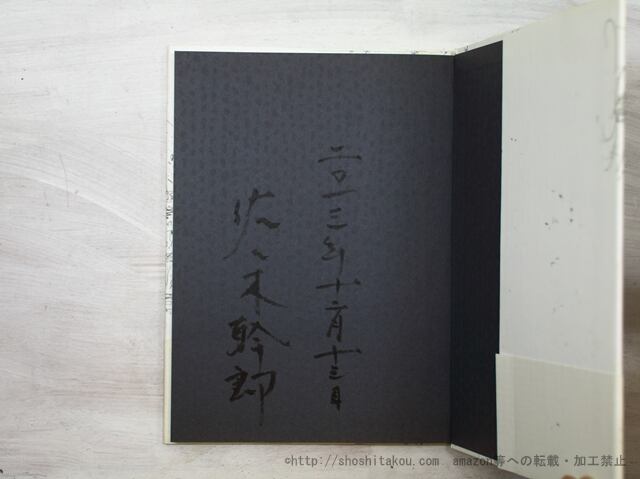 二〇一三年十二月十三日
佐々木幹郎
©http://shoshitakou.com amazon等への転載・加工禁止